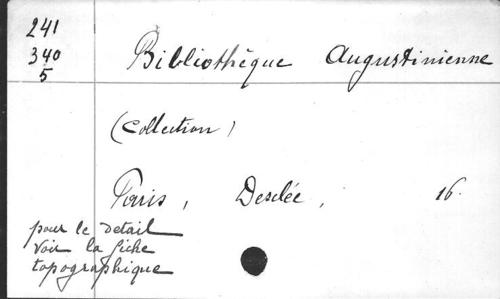 241
340
5
Bibliothèque Augustinienne
(Collection)
Paris, Desclée, 16.
pour le detail
voir la fiche
topographique